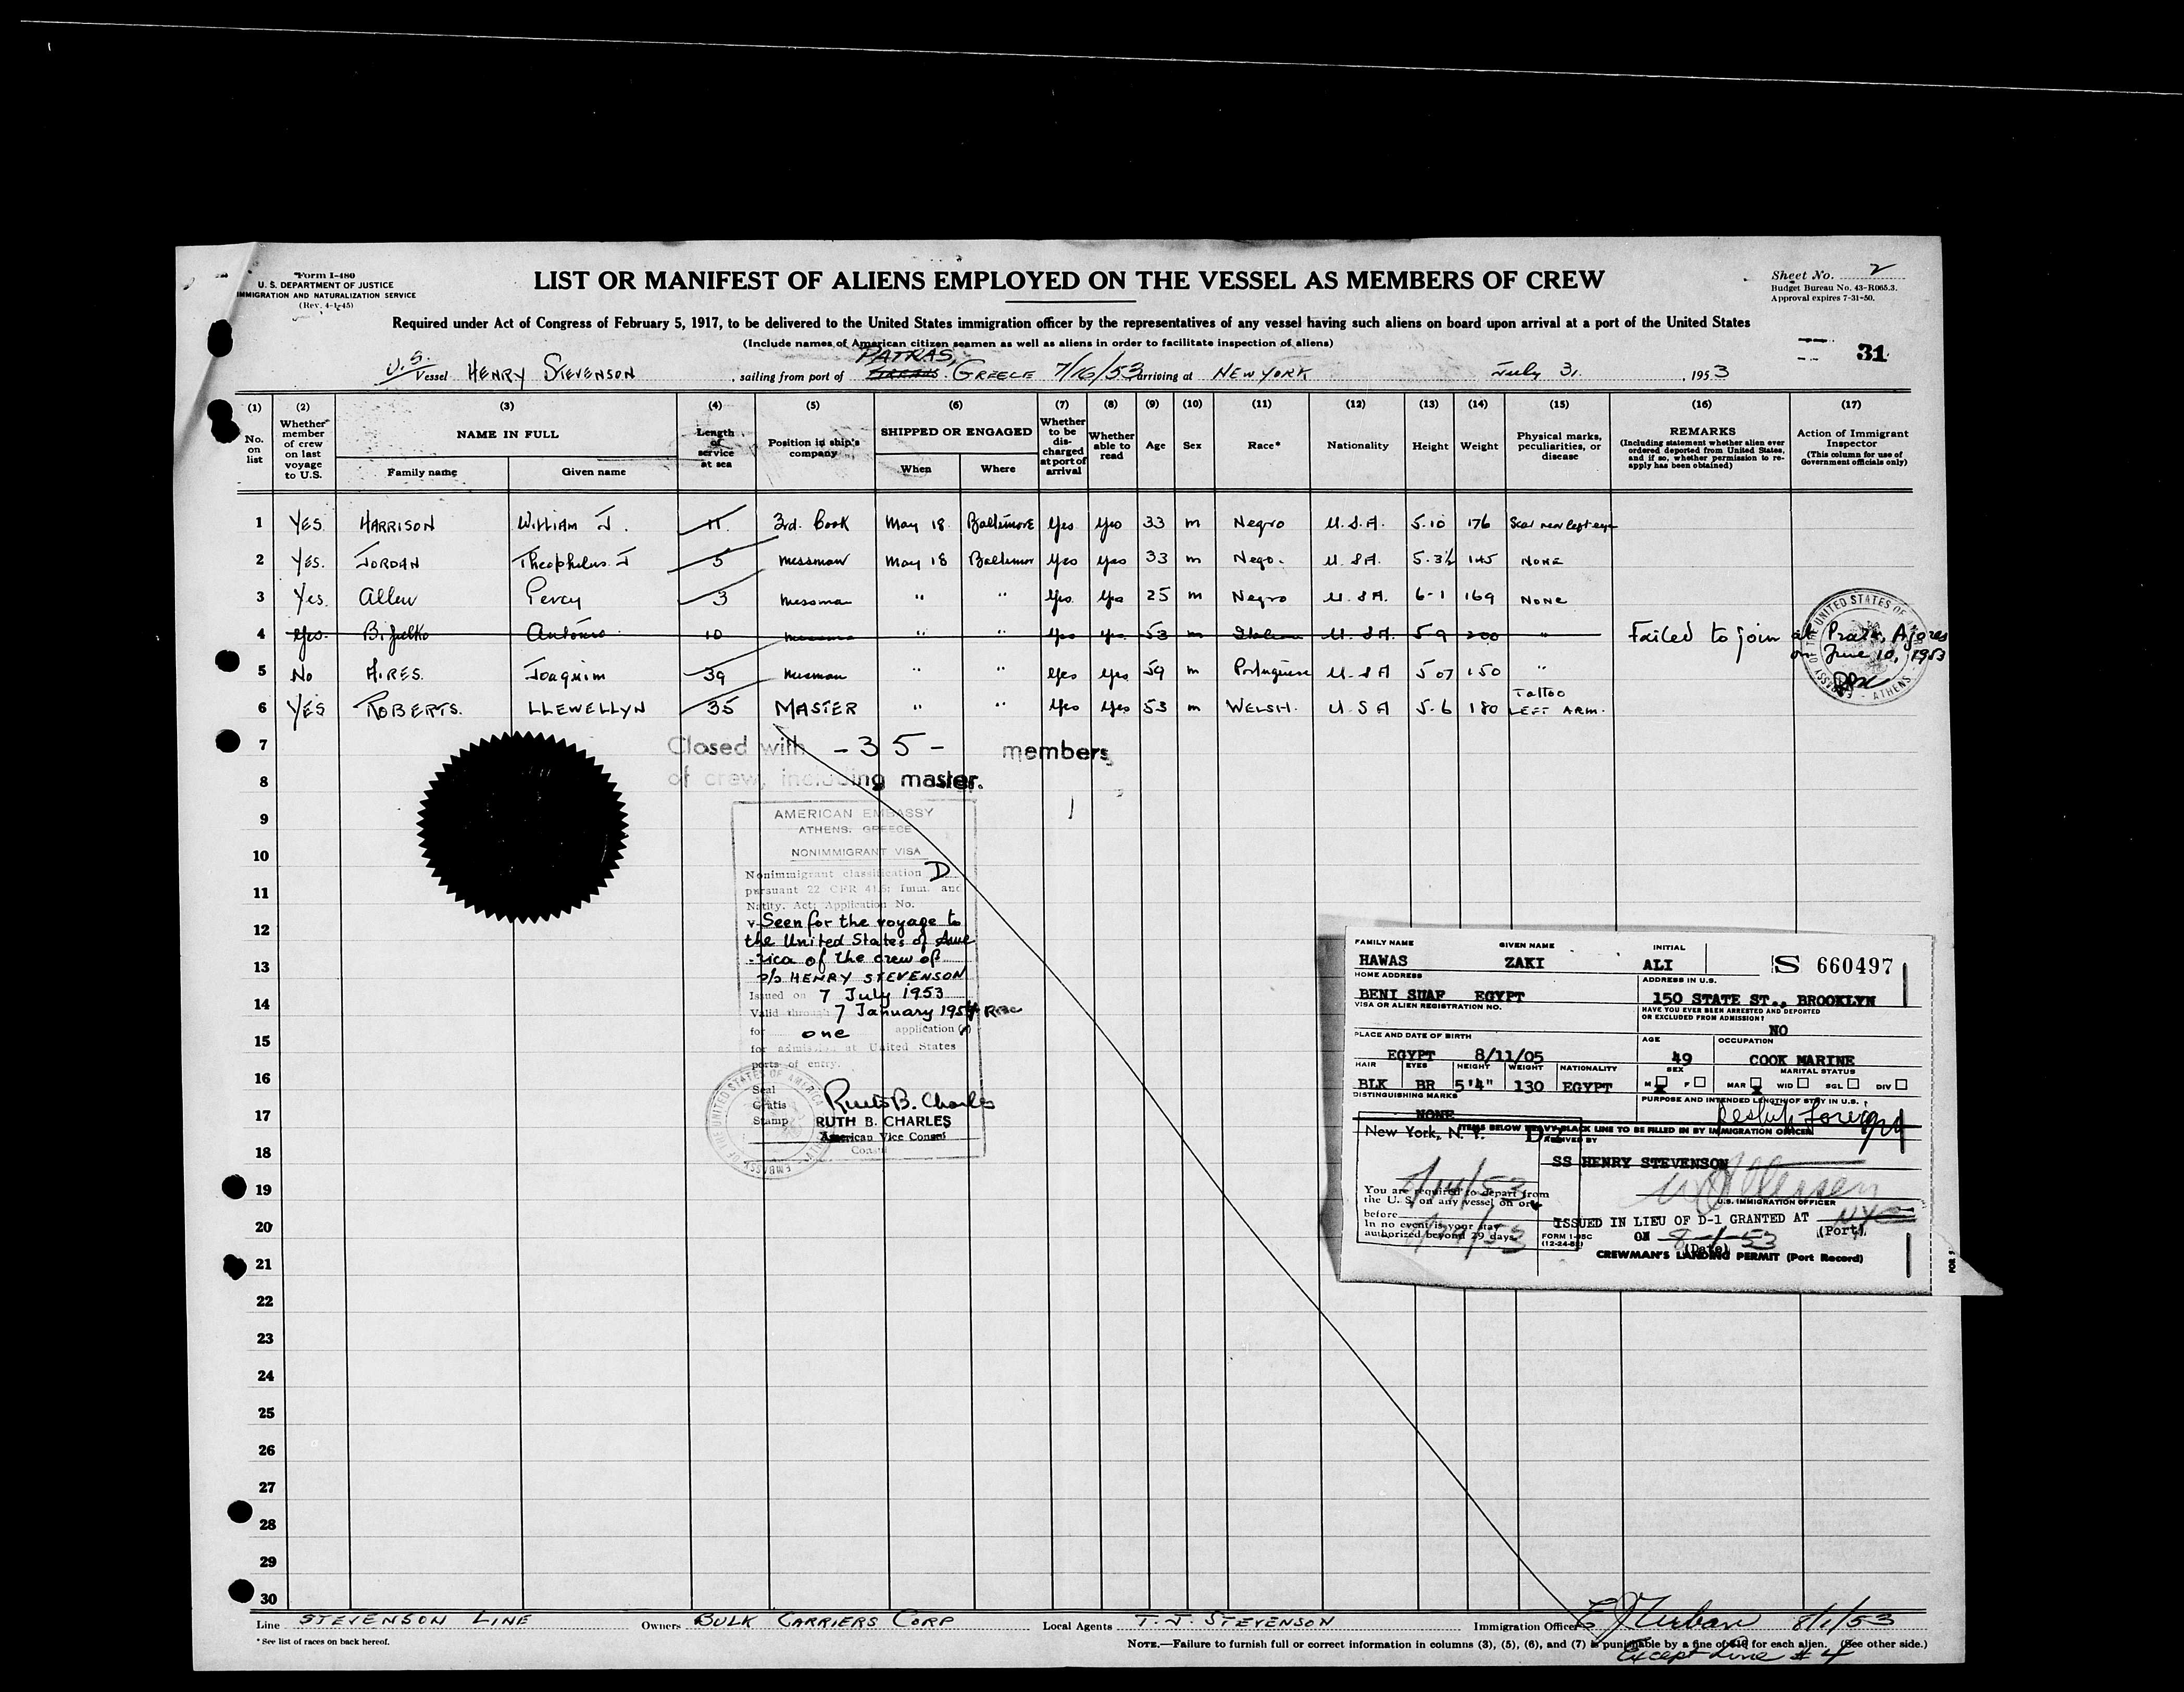 Form I-480
U. S. DEPARTMENT OF JUSTICE
IMMIGRATION AND NATURALIZATION SERVICE
(Rev. 4-1-45)
LIST OR MANIFEST OF ALIENS EMPLOYED ON THE VESSEL AS MEMBERS OF CREW
Sheet No. 2
Budget Bureau No. 43-R065.3.
Approval expires 7-31-50.
Required under Act of Congress of February 5, 1917, to be delivered to the United States immigration officer by the representatives of any vessel having such aliens on board upon arrival at a port of the United States
(Include names of American citizen seamen as well as aliens in order to facilitate inspection of aliens)
31
U.S. Vessel HENRY STEVENSON, sailing from port of PATRAS, GREECE 7/16/53 arriving at NEW YORK July 31, 1953
(1) (2) (3) (4) (5) (6) (7) (8) (9) (10) (11) (12) (13) (14) (15) (16) (17)
No. on list
Whether member of crew on last voyage to U.S.
NAME IN FULL
Family name Given name
Length of service at sea
Position in ship's company
SHIPPED OR ENGAGED
When Where
Whether to be discharged at port of arrival
Whether able to read
Age Sex Race* Nationality Height Weight
Physical marks, peculiarities, or disease
REMARKS
(Including statement whether alien ever ordered deported from United States, and if so, whether permission to reapply has been obtained)
Action of Immigrant Inspector
(This column for use of Government officials only)
1 YES HARRISON William J. 11 3rd. Cook May 18 Baltimore Yes Yes 33 m Negro U.S.A. 5.10 176 Scar near left eye
2 YES. JORDAN Theophilus J 5 messman May 18 Baltimor Yes yes 33 m Nego. U.SA. 5.3½ 145 NONE
3 Yes. Allen Percy 3 messman " " Yes. Yes 25 m Negro U.SA. 6-1 169 NONE
4 Yes. Antonio 10 messman " " Yes yes 53 m Italian U.SA. 5 9 200 " Failed to join at Azores
on June 10, 1953
5 No AIRES. Joaquim 39 messman " " Yes yes 59 m Portuguese U.S A 5 07 150 "
6 YES ROBERTS. LLEWELLYN 35 MASTER " " Yes Yes 53 m WELSH. U S A 5.6 180 Tattoo LEFT ARM.
EMBASSY OF THE UNITED STATES OF
ATHENS
7
Closed with -35- members
8
of crew, including master.
9
10
11
12
13
14
15
16
17
18
19
20
21
22
23
24
25
26
27
28
29
30
AMERICAN EMBASSY
ATHENS, GREECE
NONIMMIGRANT VISA
Nonimmigrant classification D
pursuant 22 CFR 41.5; Imm. and
Natlty. Act; Application No.
v. Seen for the voyage to
the United States of Ame
-rica of the crew of
s/s HENRY STEVENSON
Issued on 7 July 1953
Valid through 7 January 1954
for one application
for admission at United States
ports of entry.
Seal
Gratis
Stamp
Ruth B. Charles
RUTH B. CHARLES
American Vice Consul
Consul
EMBASSY OF THE UNITED STATES OF AMERICA
FAMILY NAME GIVEN NAME INITIAL
HAWAS ZAKI ALI
S 660497
HOME ADDRESS
BENI SUAF EGYPT
ADDRESS IN U.S.
150 STATE ST., BROOKLYN
VISA OR ALIEN REGISTRATION NO.
HAVE YOU EVER BEEN ARRESTED AND DEPORTED OR EXCLUDED FROM ADMISSION?
NO
PLACE AND DATE OF BIRTH
EGYPT 8/11/05
AGE
49
OCCUPATION
COOK MARINE
HAIR EYES HEIGHT WEIGHT NATIONALITY
BLK BR 5'4" 130 EGYPT
SEX
M F
MARITAL STATUS
MAR WID SGL DIV
DISTINGUISHING MARKS
NONE
PURPOSE AND INTENDED LENGTH OF STAY IN U.S.
ITEMS BELOW HEAVY BLACK LINE TO BE FILLED IN BY IMMIGRATION OFFICER
New York, N. Y.
SS HENRY STEVENSON
U.S. IMMIGRATION OFFICER
You are required to depart from
the U. S. on any vessel on or
before
In no event is your stay
authorized beyond 29 days.
ISSUED IN LIEU OF D-1 GRANTED AT NYC
(Port)
ON 8-1-53
(Date)
FORM I-95C
(12-24-52)
CREWMAN'S LANDING PERMIT (Port Record)
Line STEVENSON LINE Owners BULK CARRIERS CORP Local Agents T. J. STEVENSON Immigration Officer E J Urban 8/1/53
* See list of races on back hereof.
NOTE.—Failure to furnish full or correct information in columns (3), (5), (6), and (7) is punishable by a fine of $10 for each alien. (See other side.)
Except Line # 4